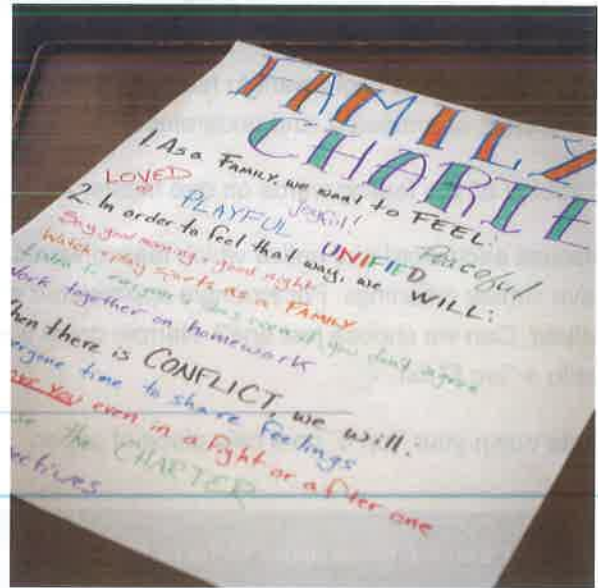 FAMILY
CHARTE
1. As a FAMILY, we want to FEEL:
LOVED PLAYFUL Joyful! UNIFIED Peaceful
2. In order to feel that way, we WILL:
Say good morning + good night
Watch + play sports as a FAMILY
Listen to everyone's ideas even if you don't agree
Work together on homework
hen there is CONFLICT, we will:
eryone time to share feelings
You, even in a fight or after one
the CHARTER
ectives